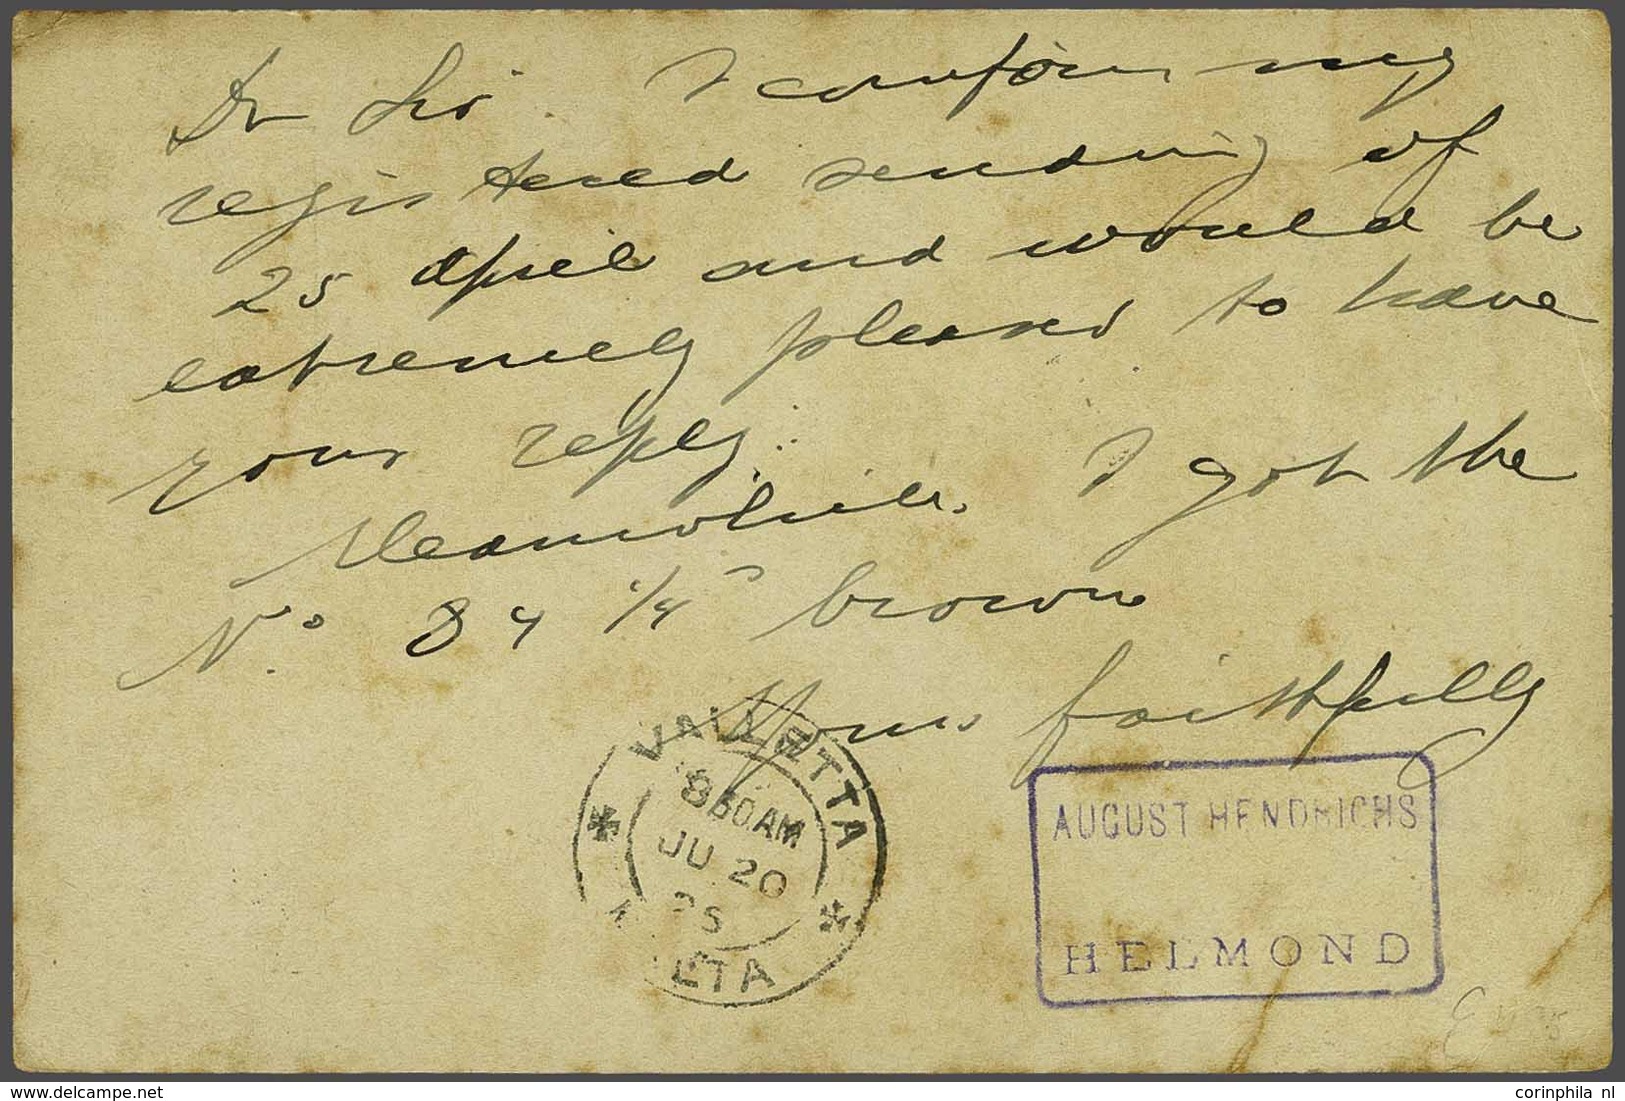 Dr Sir. I confirm my
registered sending of
25 April and would be
extremely pleased to have
your reply.
Meanwhile. I got the
No. 84 1/4 brown
Yours faithfully
VALLETTA
8 30 AM
JU 20
25
AUGUST HENDRICHS
HELMOND
corinphila nl